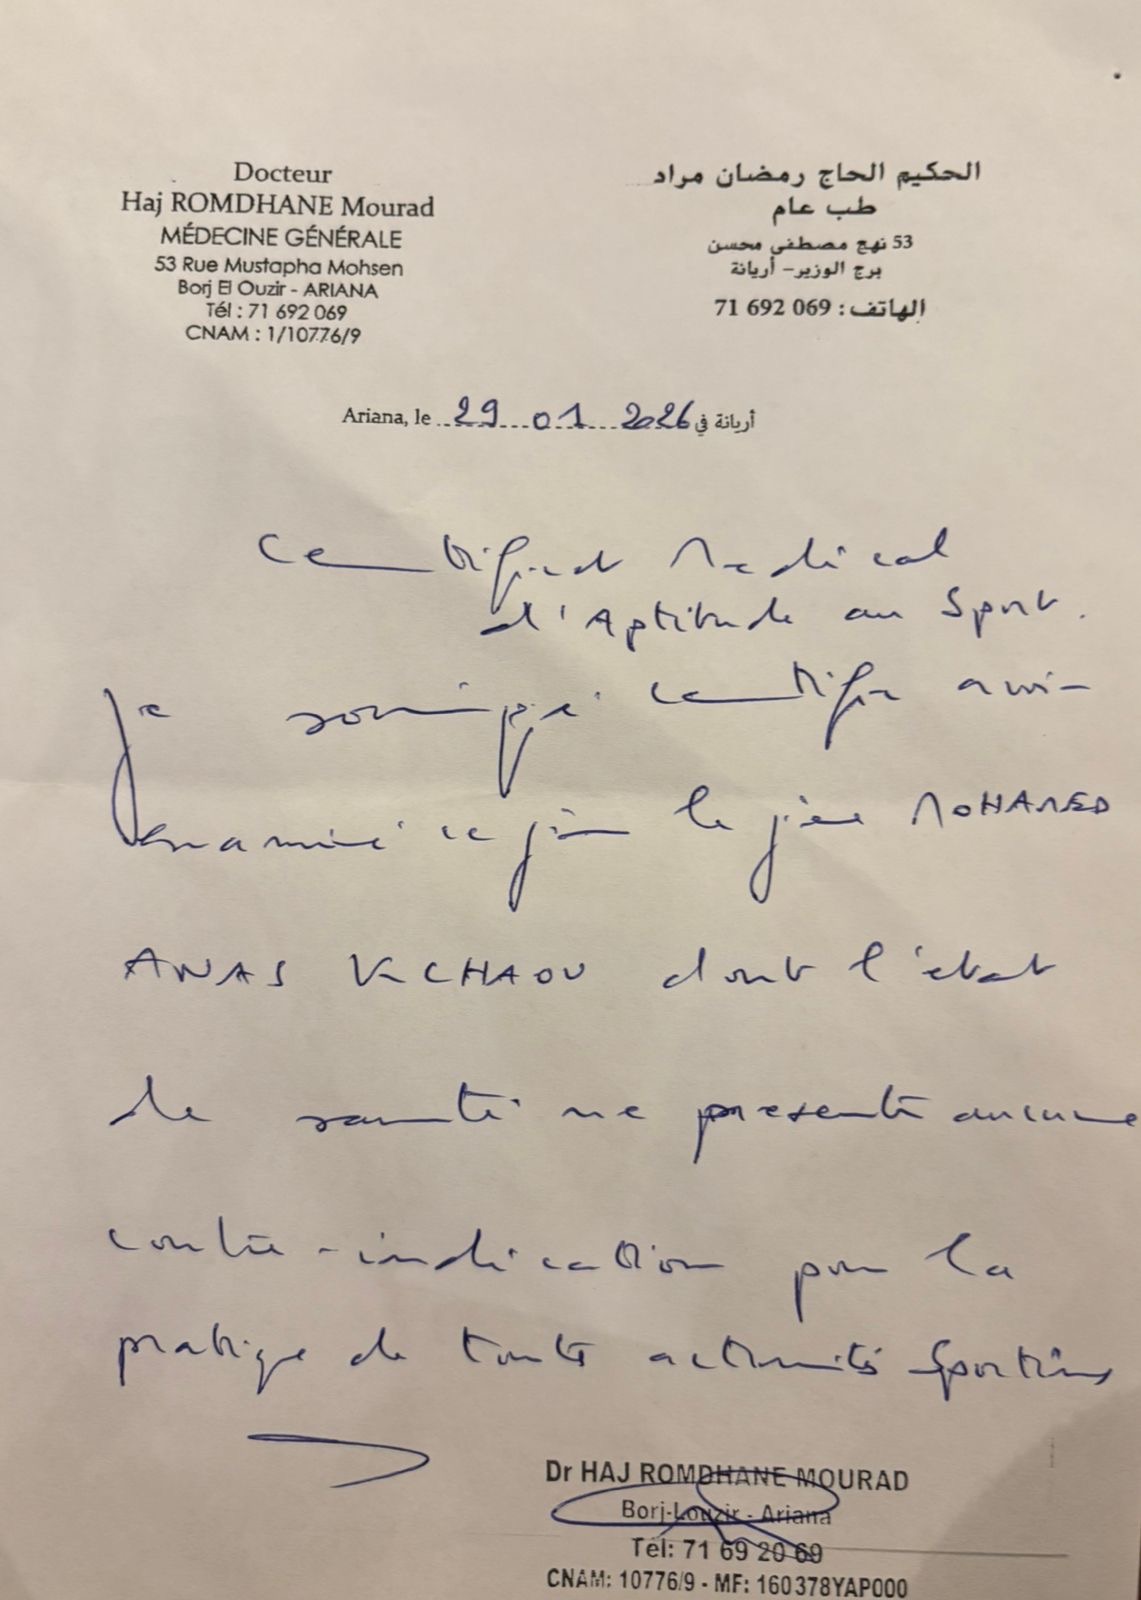 Docteur
Haj ROMDHANE Mourad
MÉDECINE GÉNÉRALE
53 Rue Mustapha Mohsen
Borj El Ouzir - ARIANA
Tél : 71 692 069
CNAM : 1/10776/9
الحكيم الحاج رمضان مراد
طب عام
53 نهج مصطفى محسن
برج الوزير- أريانة
الهاتف: 069 692 71
Ariana, le 29 01 2026 أريانة في
Certificat Medical
d'Aptitude au Sport.
Je soussigné certifie avoir
examiné ce jour le jeune MOHAMED
ANAS KCHAOU dont l'état
de santé ne présente aucune
contre-indication pour la
pratique de toute activité sportive
Dr HAJ ROMDHANE MOURAD
Borj-Louzir - Ariana
Tél: 71 69 20 69
CNAM: 10776/9 - MF: 160378YAP000